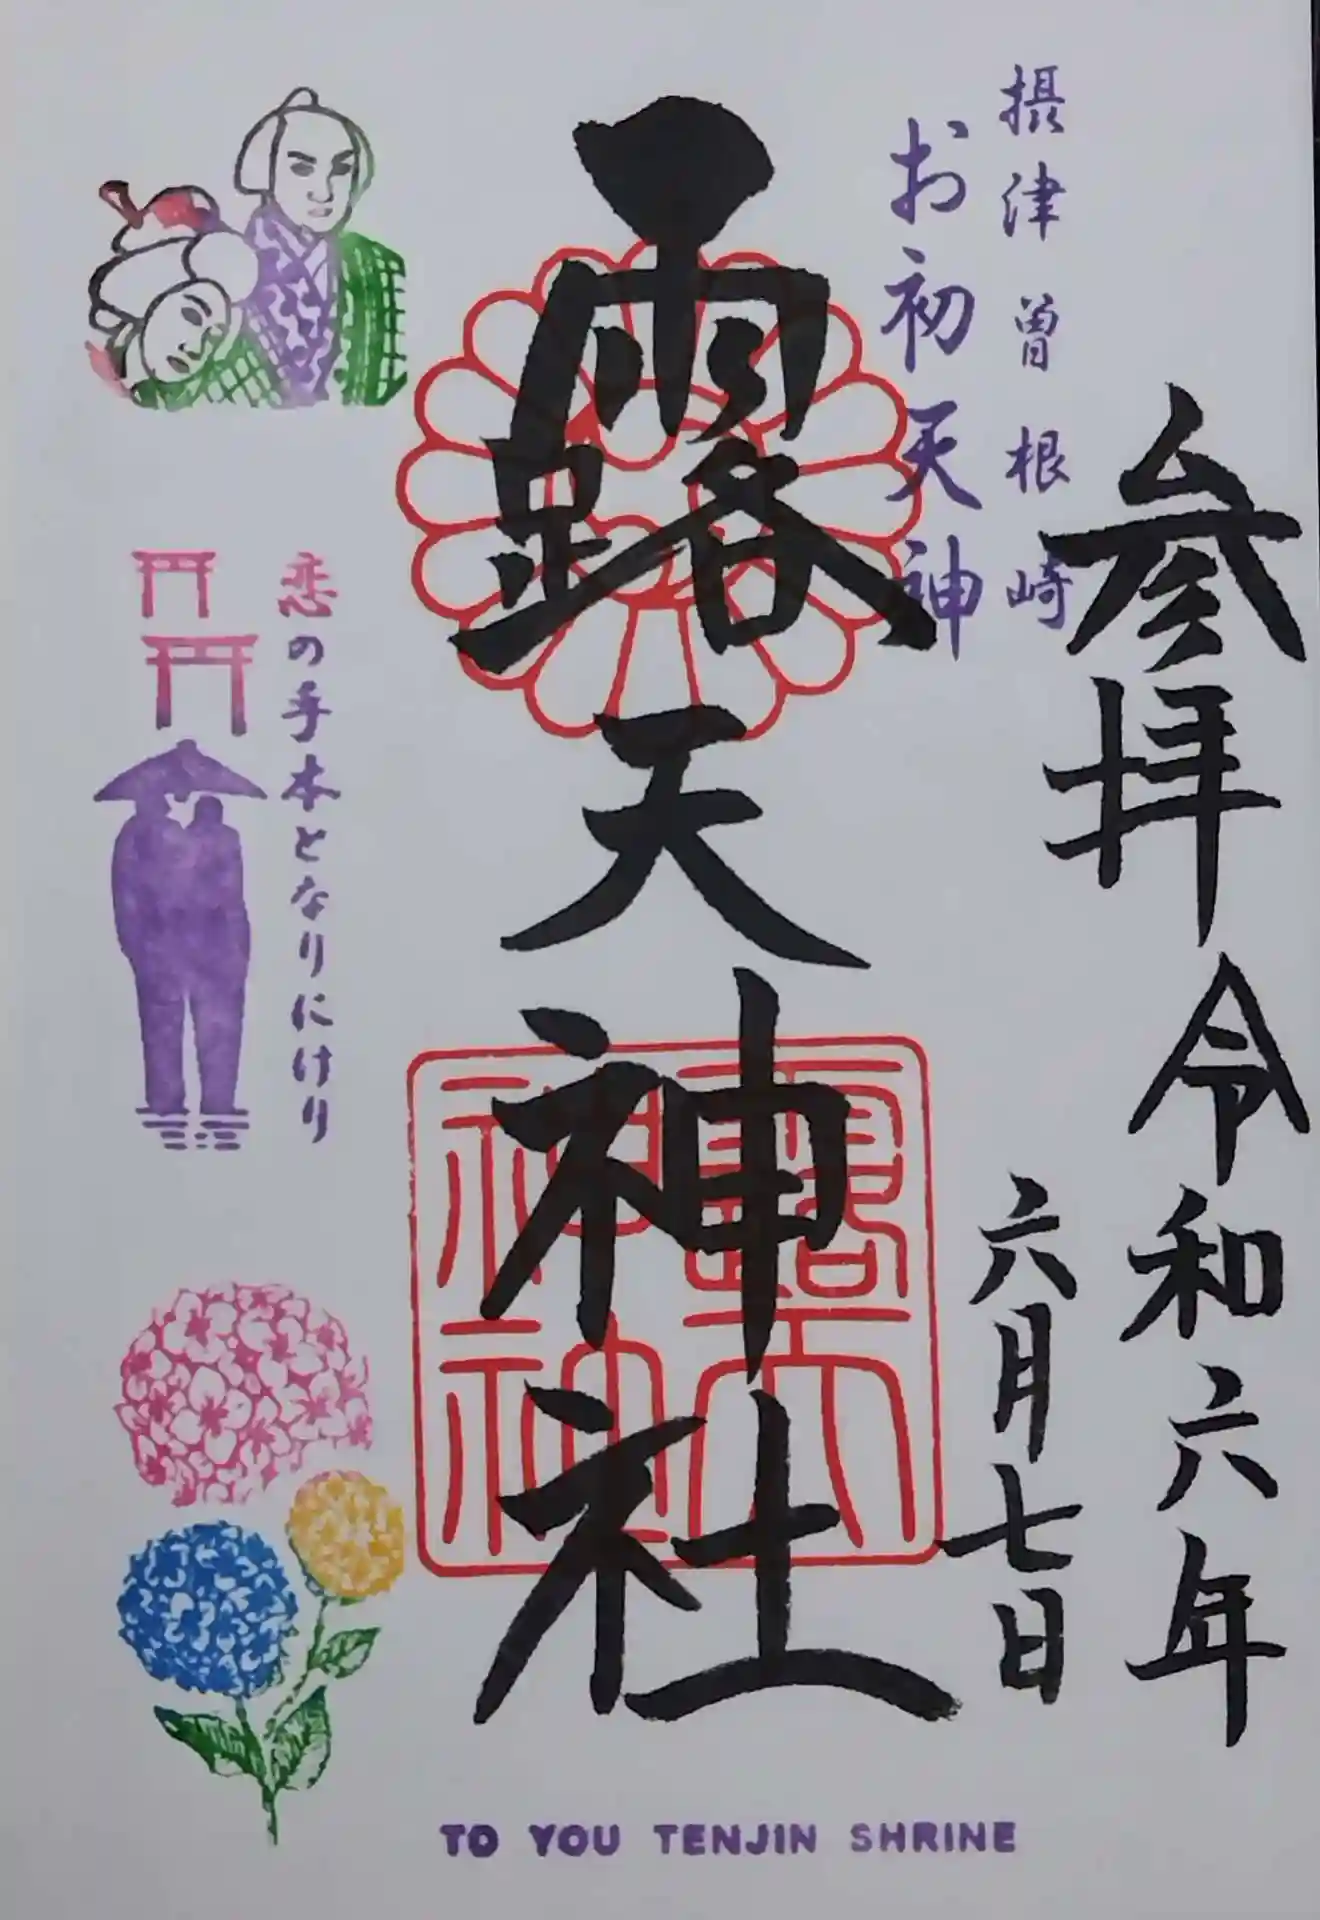 参拝 令和六年
六月七日
摂津曽根崎
お初天神
露天神社
露天
神社
恋の手本となりにけり
TO YOU TENJIN SHRINE